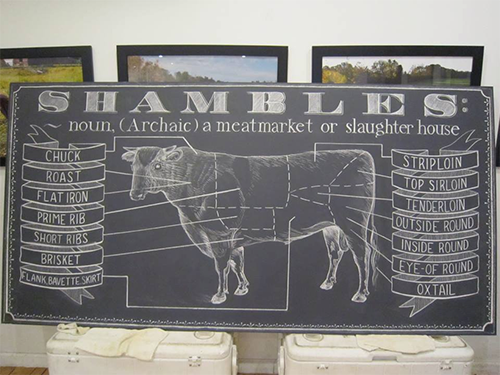 SHAMBLES:
noun, (Archaic) a meatmarket or slaughter house
CHUCK
ROAST
FLAT IRON
PRIME RIB
SHORT RIBS
BRISKET
FLANK, BAVETTE, SKIRT
STRIPLOIN
TOP SIRLOIN
TENDERLOIN
OUTSIDE ROUND
INSIDE ROUND
EYE-OF ROUND
OXTAIL